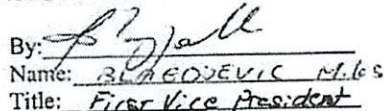 By:
Name: BLAGOJEVIC Miles
Title: First Vice President